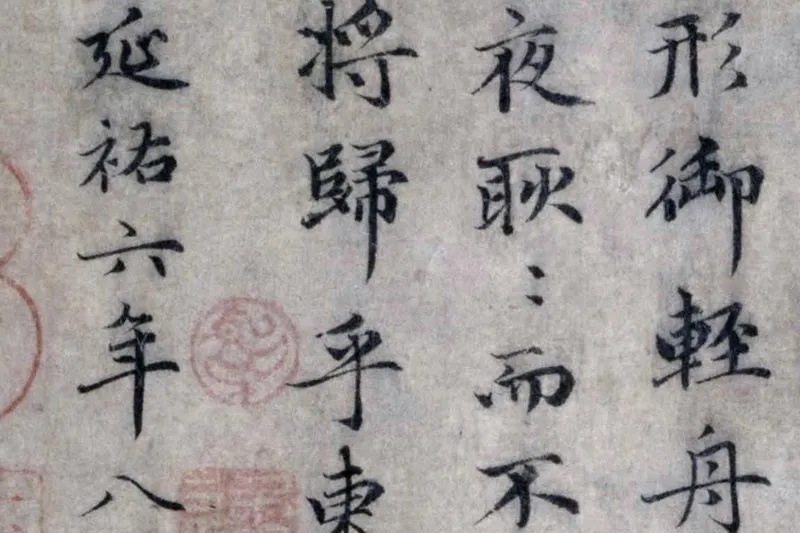 形御輕舟
夜耿〻而不
將歸乎東
延祐六年八